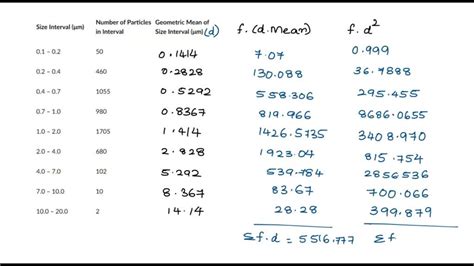 Size Interval (µm) Number of Particles in Interval Geometric Mean of Size Interval (µm) (d) f.(d.Mean) f.d²
0.1 – 0.2 50 0.1414 7.07 0.999
0.2 – 0.4 460 0.2828 130.088 36.7888
0.4 – 0.7 1055 0.5292 558.306 295.455
0.7 – 1.0 980 0.8367 819.966 8686.0655
1.0 – 2.0 1705 1.414 1426.5735 3408.970
2.0 – 4.0 680 2.828 1923.04 815.754
4.0 – 7.0 102 5.292 539.784 2856536
7.0 – 10.0 10 8.367 83.67 700.066
10.0 – 20.0 2 14.14 28.28 399.879
Σf.d = 5516.777 Σf